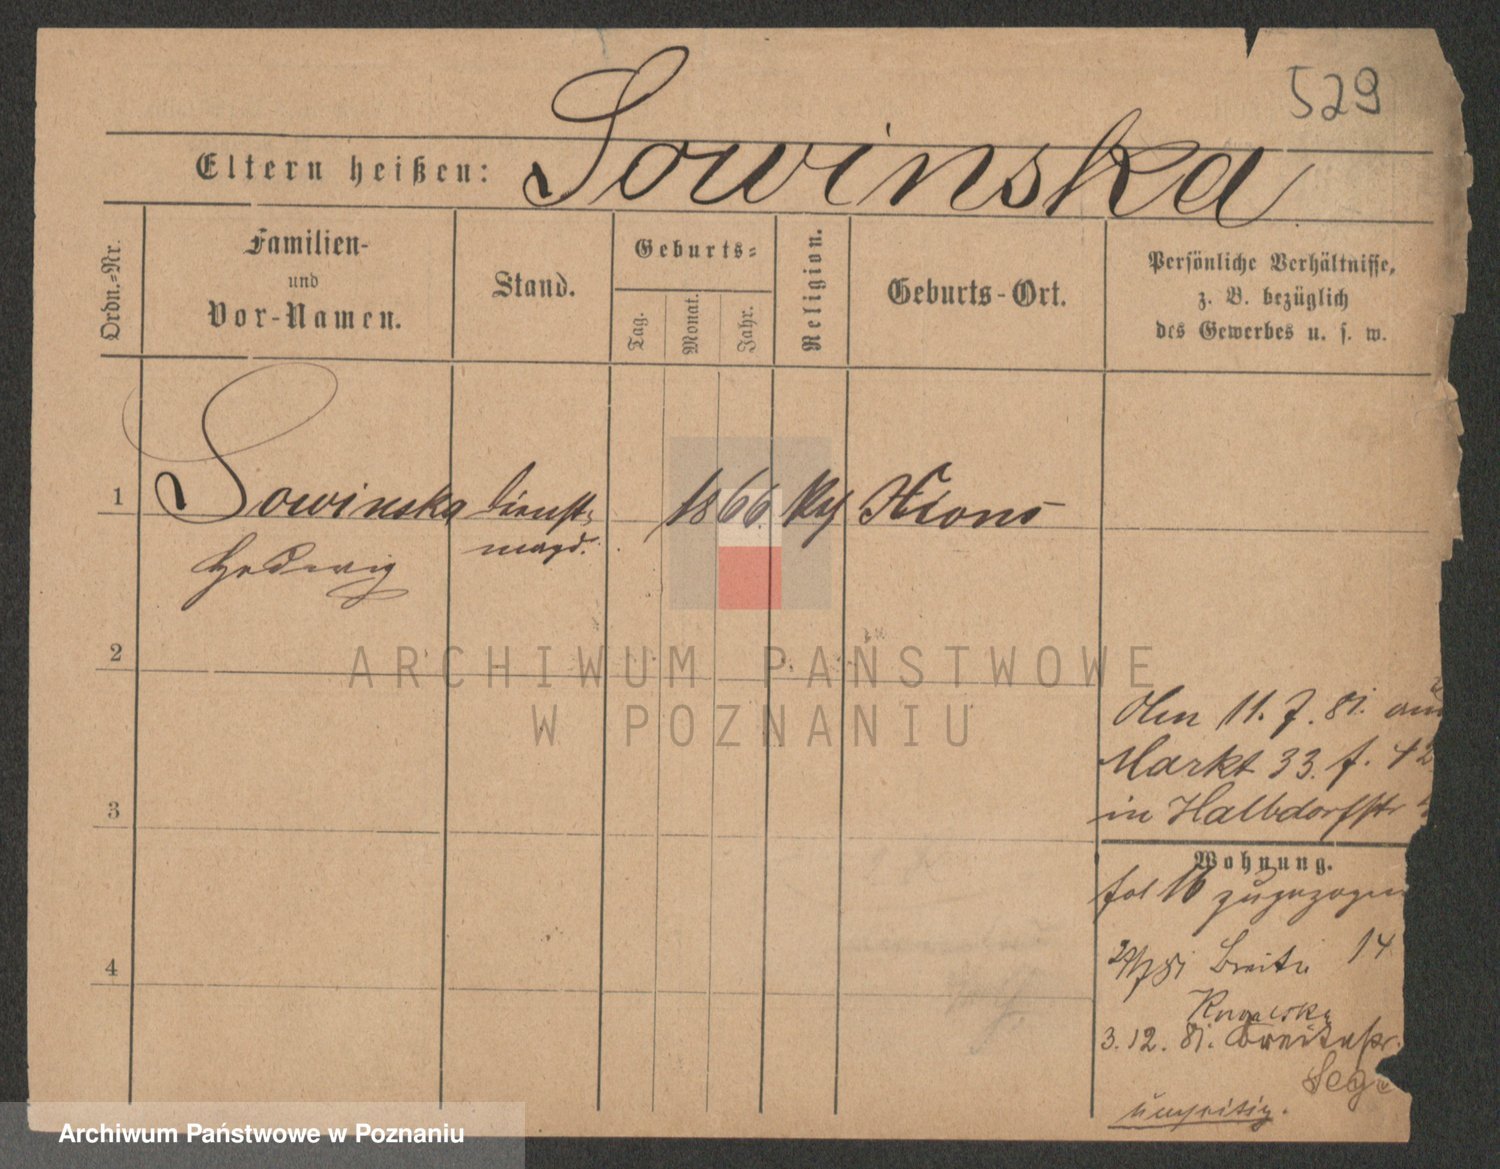 529
Eltern heißen: Sowinska
Ordn.-Nr.
Familien-
und
Vor-Namen.
Stand.
Geburts-
Tag.
Monat.
Jahr.
Religion.
Geburts-Ort.
Persönliche Verhältnisse,
z. B. bezüglich
des Gewerbes u. s. w.
1 Sowinska Dienst- 1866. Kth Xions
Hedwig magd.
2
ARCHIWUM PAŃSTWOWE
W POZNANIU
Den 11. 7. 81. aus
Markt 33. f. 42
3
in Halbdorfstr
Wohnung.
fol 16 zugezogen
4
27/7 81 Breite 14
3. 12. 81. Breitestr.
umseitig.
Archiwum Państwowe w Poznaniu